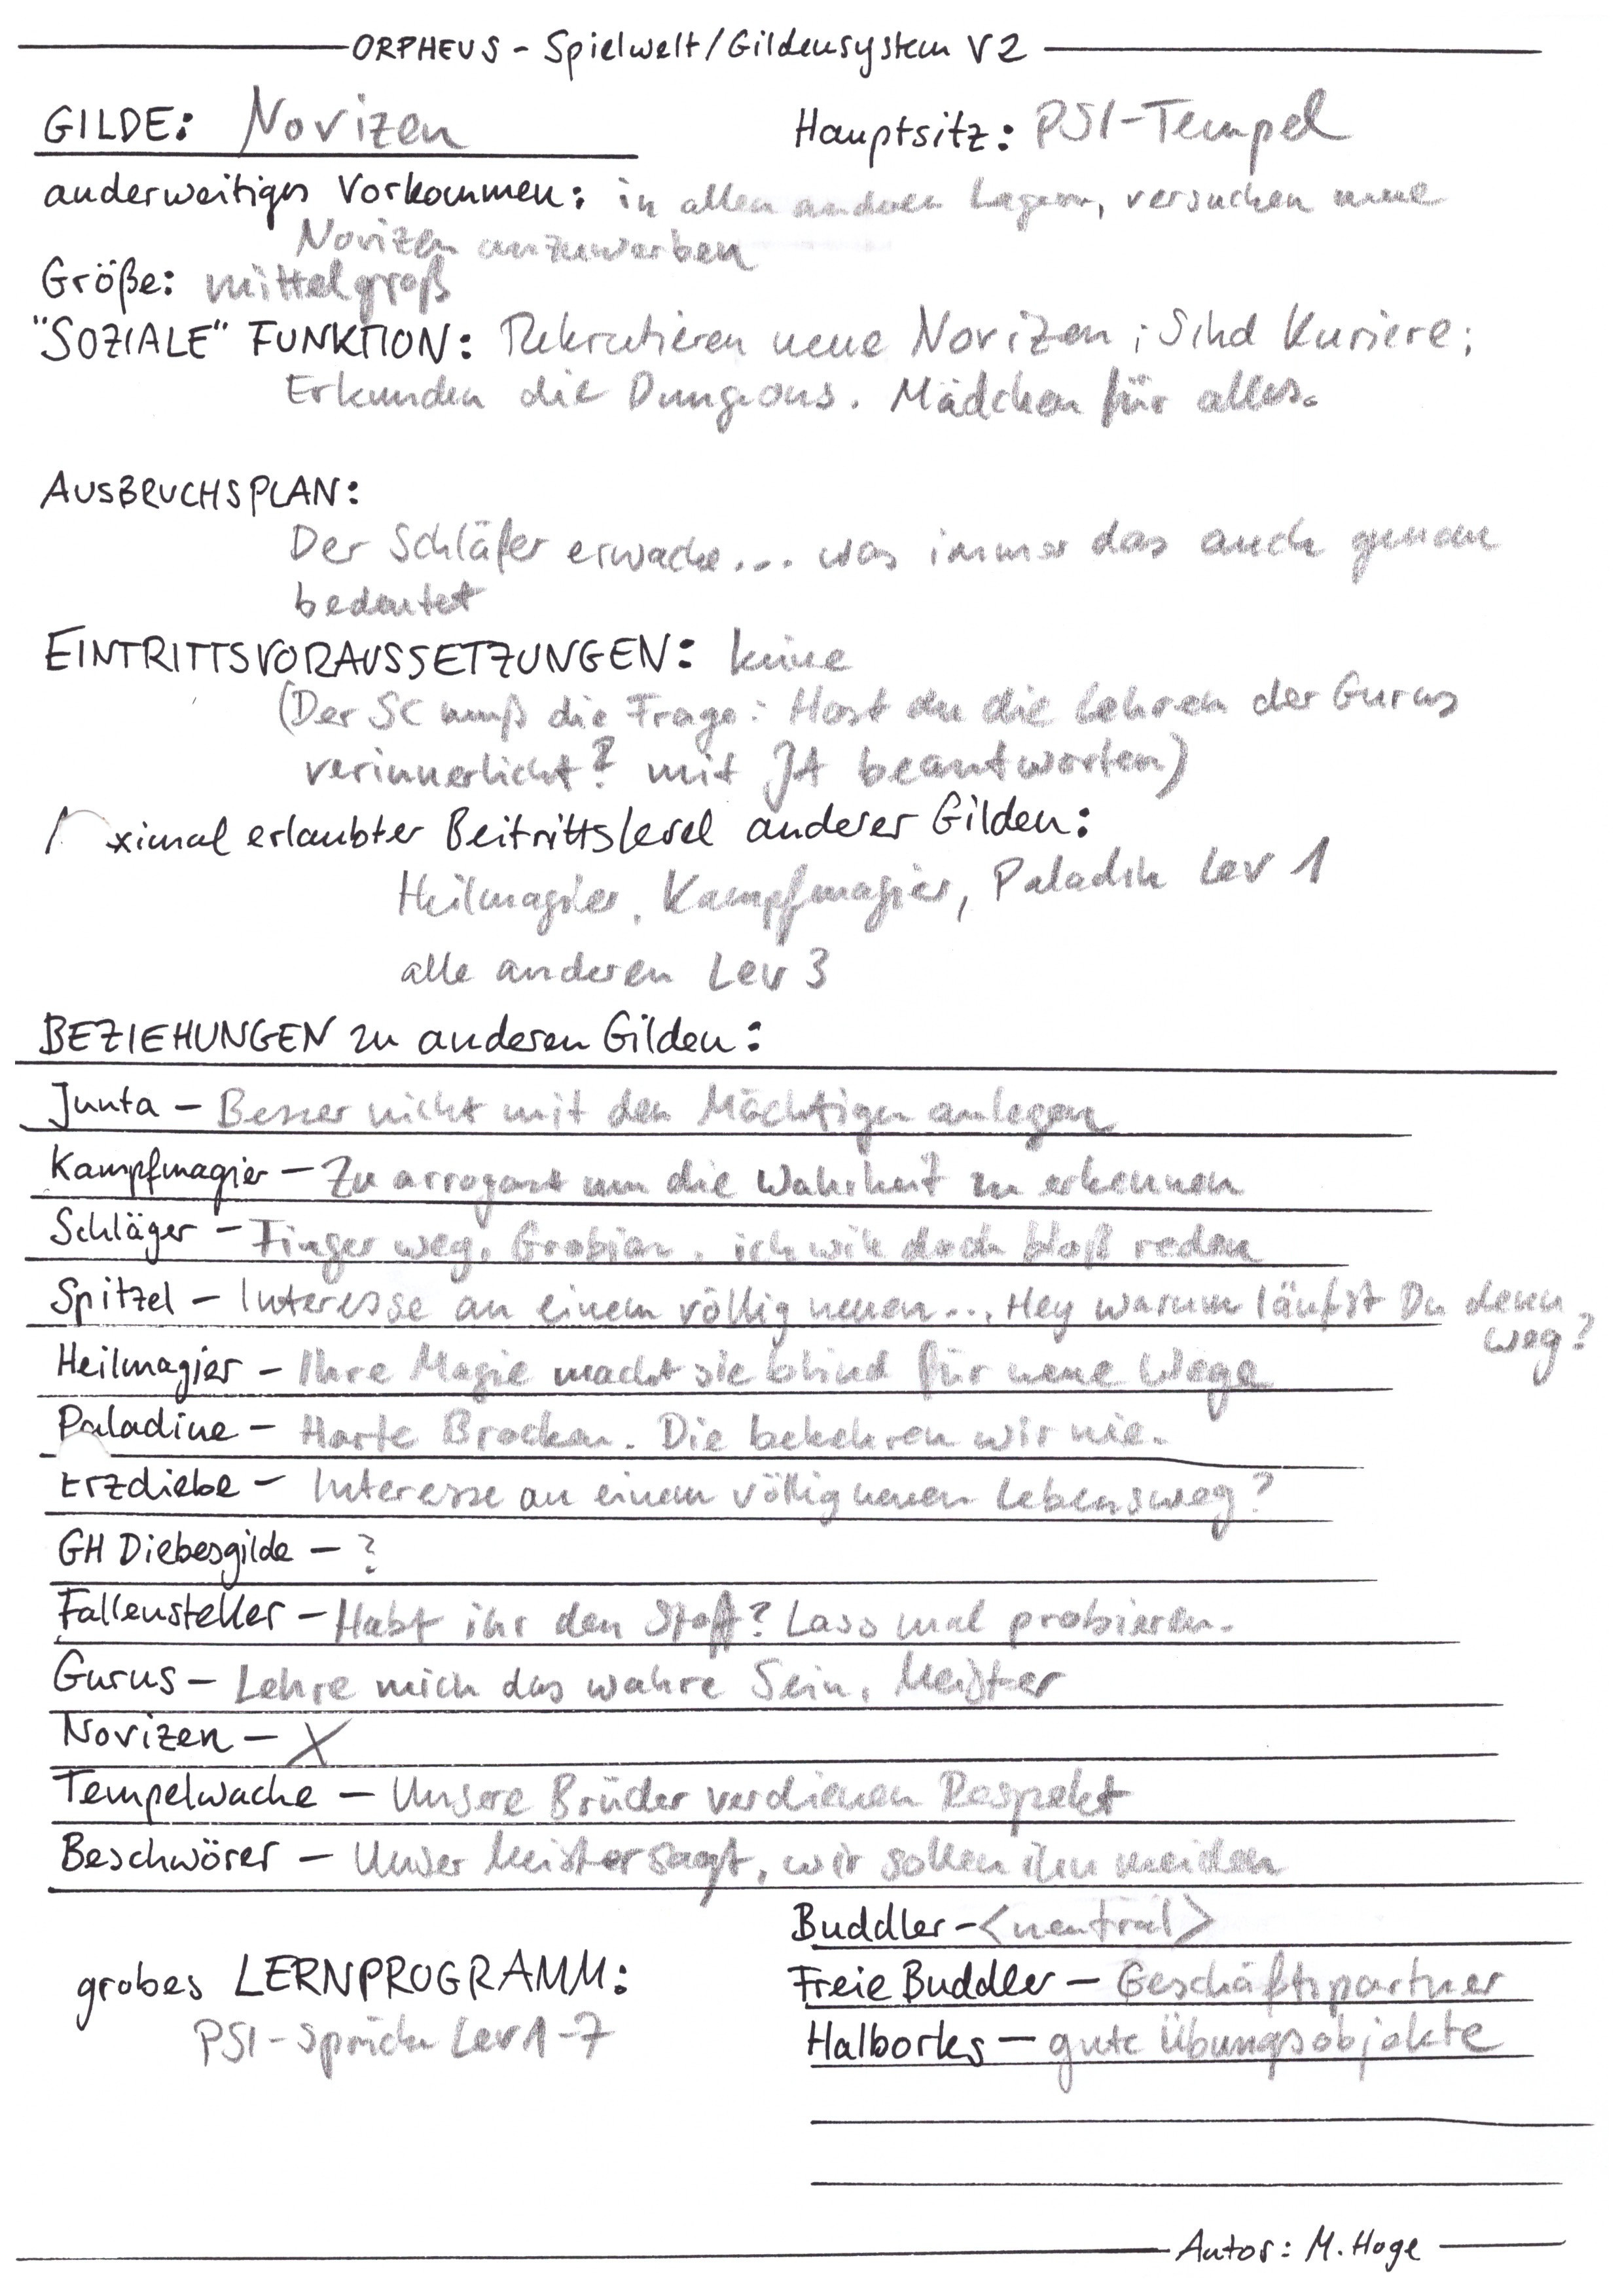 ORPHEUS - Spielwelt/Gildensystem V2
GILDE: Novizen Hauptsitz: PSI-Tempel
anderweitiges Vorkommen: in allen anderen Lagern, versuchen neue
Novizen anzuwerben
Größe: mittelgroß
"SOZIALE" FUNKTION: Rekrutieren neue Novizen; Sind Kuriere;
Erkunden die Dungeons. Mädchen für alles.
AUSBRUCHSPLAN:
Der Schläfer erwache... was immer das auch genau
bedeutet
EINTRITTSVORAUSSETZUNGEN: keine
(Der SC muß die Frage: Hast du die Lehren der Gurus
verinnerlicht? mit JA beantworten)
ximal erlaubter Beitrittslevel anderer Gilden:
Heilmagier, Kampfmagier, Paladin Lev 1
alle anderen Lev 3
BEZIEHUNGEN zu anderen Gilden:
Junta - Besser nicht mit den Mächtigen anlegen
Kampfmagier - Zu arrogant um die Wahrheit zu erkennen
Schläger - Finger weg, Grobian, ich will doch bloß reden
Spitzel - Interesse an einem völlig neuen... Hey warum läufst Du denn
weg?
Heilmagier - Ihre Magie macht sie blind für neue Wege
Paladine - Harte Brocken. Die bekehren wir nie.
Erzdiebe - Interesse an einem völlig neuen Lebensweg?
GH Diebesgilde - ?
Fallensteller - Habt ihr den Stoff? Lass mal probieren.
Gurus - Lehre mich das wahre Sein, Meister
Novizen - X
Tempelwache - Unsere Brüder verdienen Respekt
Beschwörer - Unser Meister sagt, wir sollen ihn meiden
Buddler - <neutral>
grobes LERNPROGRAMM:
PSI-Sprüche Lev 1-7
Freie Buddler - Geschäftspartner
Halborks - gute Übungsobjekte
Autor: M. Hoge